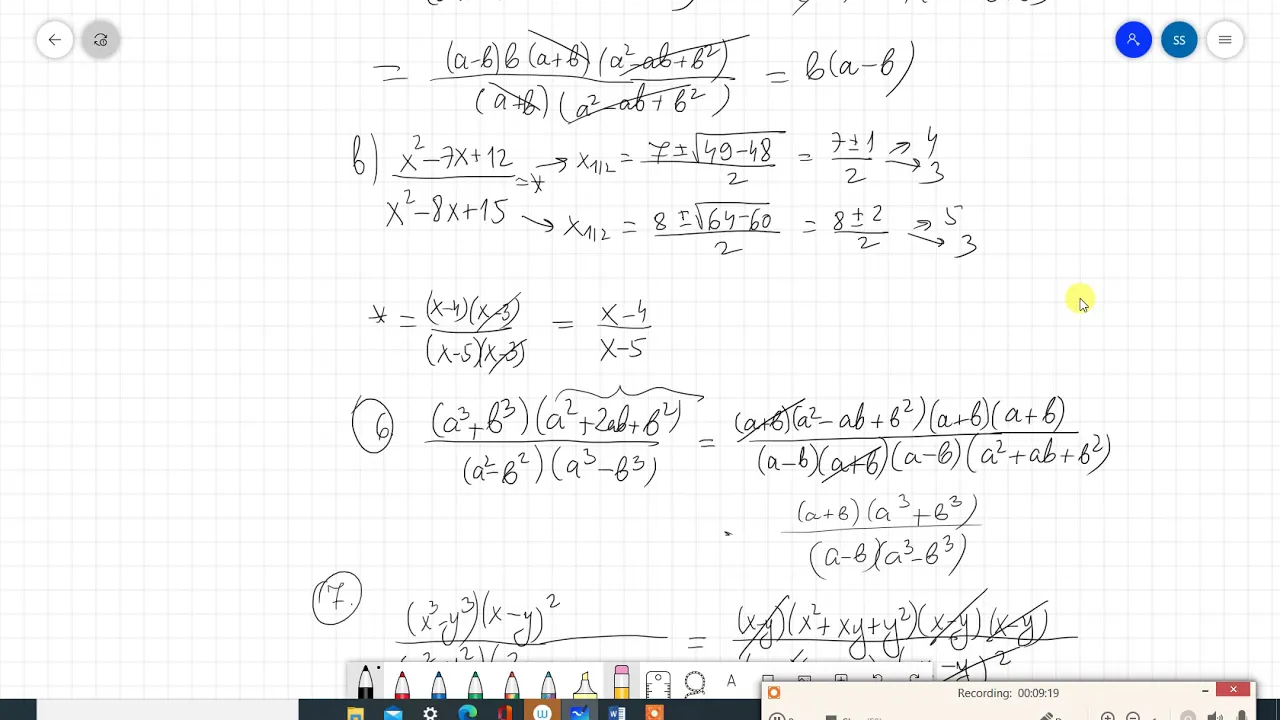 = (a-b)b(a+b)(a²-ab+b²) / (a+b)(a²-ab+b²) = b(a-b)
b) x²-7x+12 / x²-8x+15 = *
→ x₁/₂ = 7±√49-48 / 2 = 7±1 / 2 → 4 → 3
→ x₁/₂ = 8±√64-60 / 2 = 8±2 / 2 → 5 → 3
* = (x-4)(x-3) / (x-5)(x-3) = x-4 / x-5
6 (a³+b³)(a²+2ab+b²) / (a²-b²)(a³-b³) = (a+b)(a²-ab+b²)(a+b)(a+b) / (a-b)(a+b)(a-b)(a²+ab+b²)
(a+b)(a³+b³) / (a-b)(a³-b³)
7. (x³-y³)(x-y)² = (x-y)(x²+xy+y²)(x-y)(x-y)
SS
A
Recording: 00:09:19